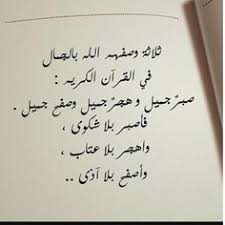 ثلاثة وصفهم الله بالجمال
في القرآن الكريم :
صبرٌ جميل و هجرٌ جميل وصفح جميل .
فاصبر بلا شكوى ،
واهجر بلا عتاب ،
وأصفح بلا آذى ..